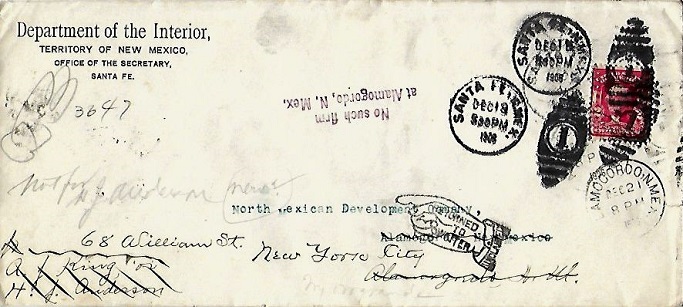 Department of the Interior,
TERRITORY OF NEW MEXICO,
OFFICE OF THE SECRETARY,
SANTA FE.
3647
No such firm
at Alamogordo, N. Mex.
SANTA FE, N.MEX.
DEC 19
5 30 PM
1908
SANTA FE, N.MEX.
DEC 19
5 30 PM
1908
1
ALAMOGORDO, N.MEX.
DEC 21
8 PM
not for H J Anderson
North Mexican Development Company,
RETURNED
TO
WRITER
Alamogordo New Mexico
68 William St. New York City
A J King or
H. J. Anderson
Alamogordo N.M.